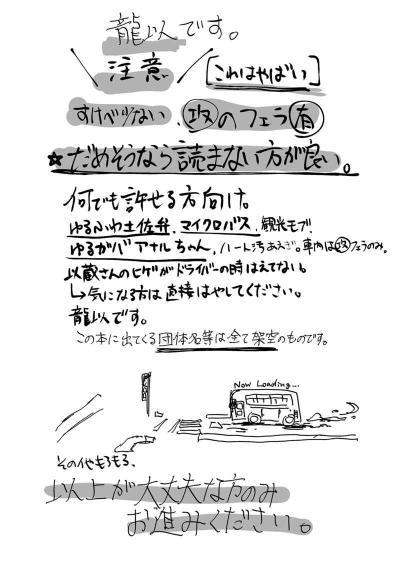 龍以です。
注意
[これはやばい]
すけべ少ない、攻のフェラ有
☆だめそうなら読まない方が良い。
何でも許せる方向け。
ゆるふわ土佐弁、マイクロバス、観光モブ
ゆるがバアナルちゃん、ハート汚あえぎ。車内は攻フェラのみ。
以蔵さんのヒゲがドライバーの時はえてない。
↳気になる方は直接はやしてください。
龍以です。
この本に出てくる団体名等は全て架空のものです。
Now Loading...
その他もろもろ、
以上が大丈夫な方のみ
お進みください。